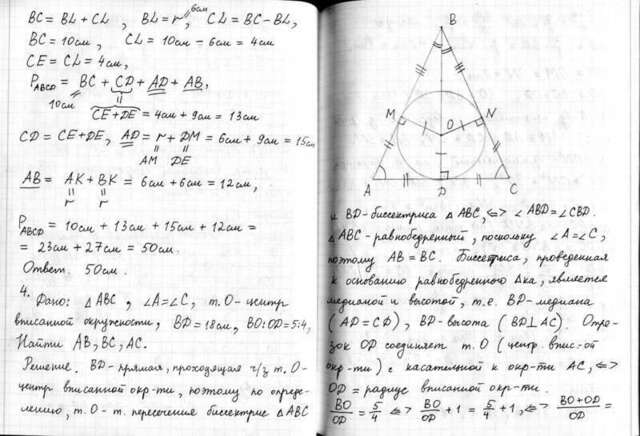 BC = BL + CL, BL = r = 6см, CL = BC - BL,
BC = 10см, CL = 10см - 6см = 4см
CE = CL = 4см,
P_ABCD = BC + CD + AD + AB,
10см
CE+DE = 4см + 9см = 13см
CD = CE+DE, AD = r + DM = 6см + 9см = 15см
AM DE
AB = AK + BK = 6см + 6см = 12см,
r r
P_ABCD = 10см + 13см + 15см + 12см =
= 23см + 27см = 50см.
Ответ. 50см.
4.
Дано: △ABC, ∠A=∠C, т. O - центр
вписанной окружности, BD = 18см, BO:OD = 5:4,
Найти AB, BC, AC.
Решение. BD - прямая, проходящая ч/з т. O -
центр вписанной окр-ти, поэтому по опреде-
лению, т. O - т. пересечения биссектрис △ABC
B
M
N
O
A
D
C
и BD - биссектриса △ABC, <=> ∠ABD = ∠CBD.
△ABC - равнобедренный, поскольку ∠A = ∠C,
поэтому AB = BC. Биссектриса, проведенная
к основанию равнобедренного △ка, является
медианой и высотой, т.е. BD - медиана
(AD = CD), BD - высота (BD⊥AC). Отре-
зок OD соединяет т. O (центр. впис-ой
окр-ти) с касательной к окр-ти AC, <=>
OD = радиус вписанной окр-ти.
BO/OD = 5/4 <=> BO/OD + 1 = 5/4 + 1, <=> BO+OD/OD =